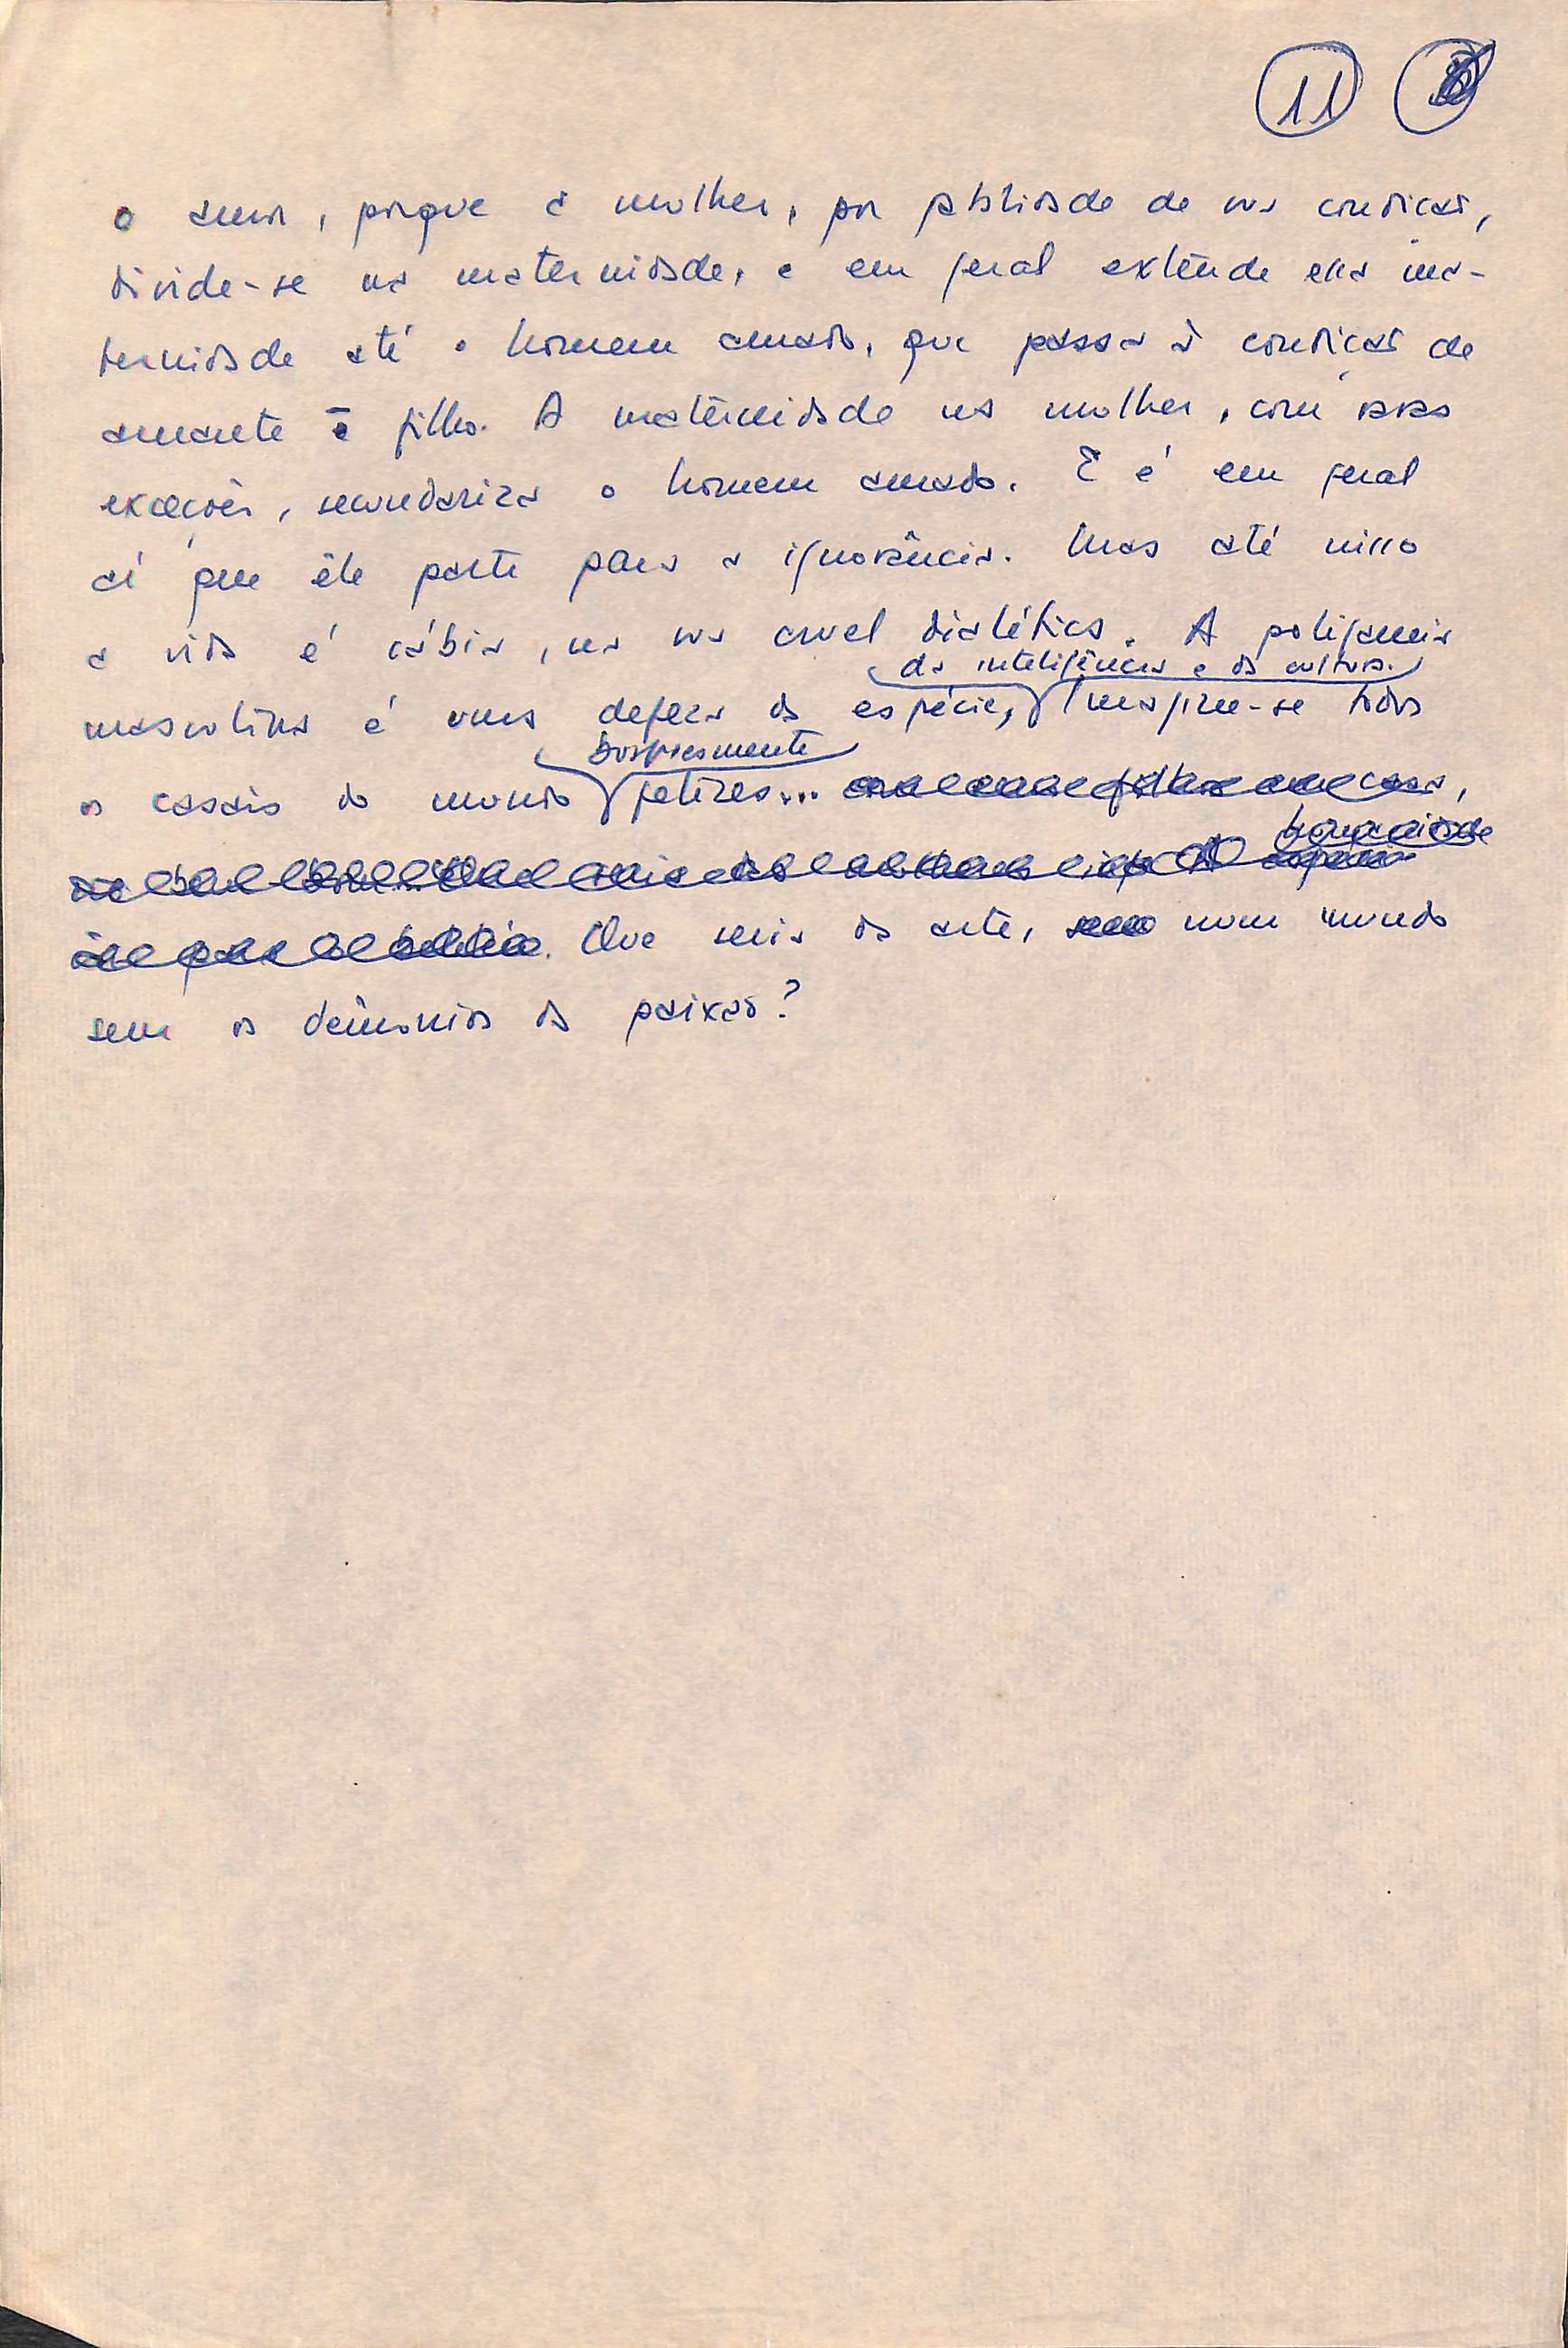 11
o amor, porque a mulher, por fatalidade de sua condição,
divide-se na maternidade, e em geral extende essa ma-
ternidade até o homem amado, que passa à condição de
amante e filho. A maternidade na mulher, com raras
exceções, secundariza o homem amado. E é em geral
aí que êle parte para a ignorância. Mas até nisso
a vida é sábia, na sua cruel dialética. A poligamia
da inteligência e da cultura.
masculina é uma defeza da espécie, imagine-se todos
burguesmente
os casais do mundo felizes...
Que seria da arte, num mundo
sem os demônios da paixão?